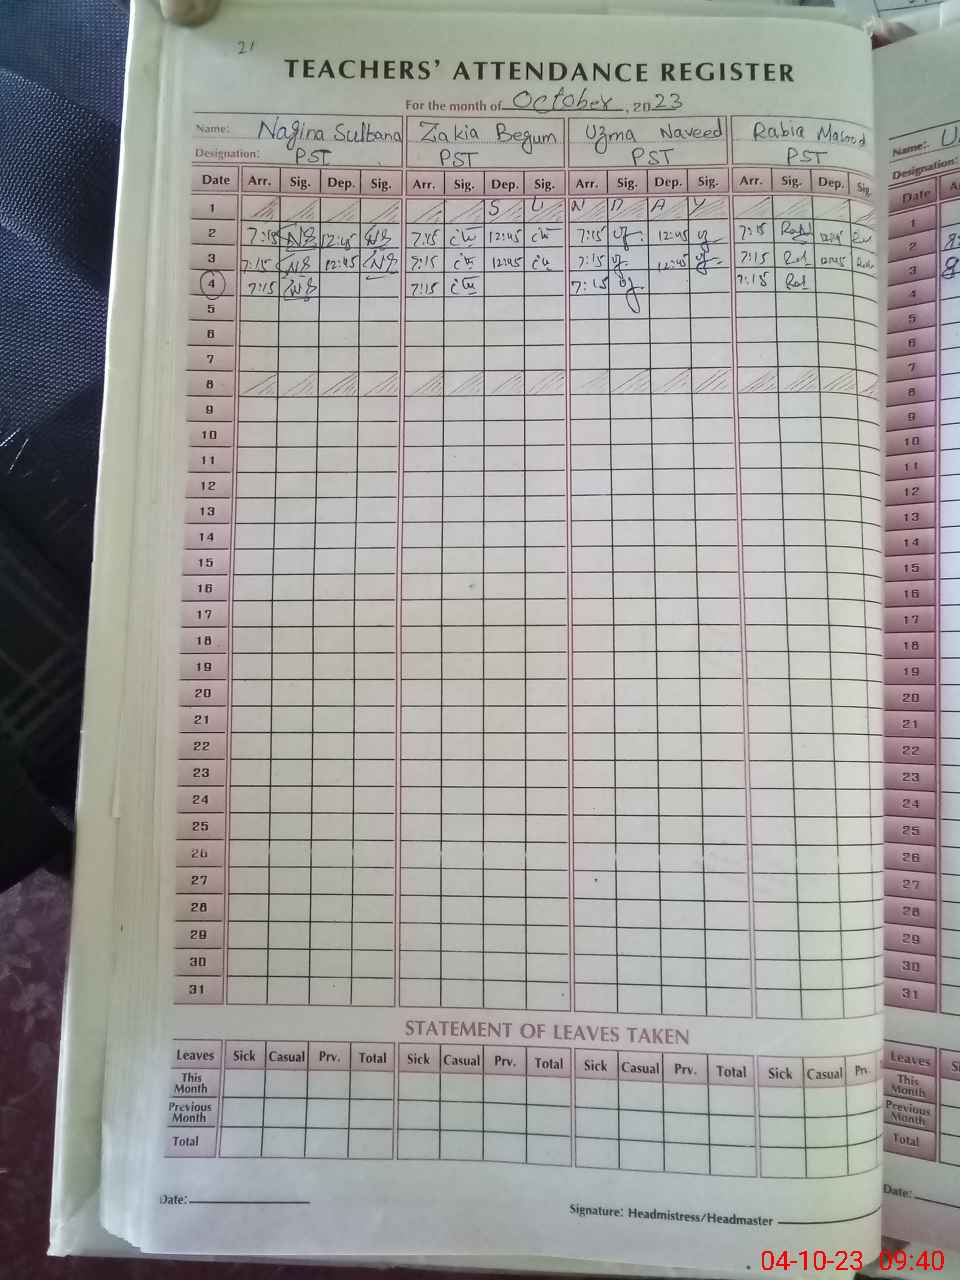 21
TEACHERS' ATTENDANCE REGISTER
For the month of October, 2023
Name: Nagina Sultana Zakia Begum Uzma Naveed Rabia Masood
Designation: PST PST PST PST
Date Arr. Sig. Dep. Sig. Arr. Sig. Dep. Sig. Arr. Sig. Dep. Sig. Arr. Sig. Dep. Sig.
1 S U N D A Y
2 7:15 NS 12:45 NS 7:15 12:45 7:15 12:45 7:15 12:45
3 7:15 NS 12:45 NS 7:15 12:45 7:15 12:45 7:15 12:45
4 7:15 NS 7:15 7:15 7:15
5
6
7
8
9
10
11
12
13
14
15
16
17
18
19
20
21
22
23
24
25
26
27
28
29
30
31
STATEMENT OF LEAVES TAKEN
Leaves Sick Casual Prv. Total Sick Casual Prv. Total Sick Casual Prv. Total Sick Casual Prv.
This Month
Previous Month
Total
Date:
Signature: Headmistress/Headmaster
Name:- U
Designation:
Date
1
2
3
4
5
6
7
8
9
10
11
12
13
14
15
16
17
18
19
20
21
22
23
24
25
26
27
28
29
30
31
Leaves
This Month
Previous Month
Total
Date:
04-10-23 09:40